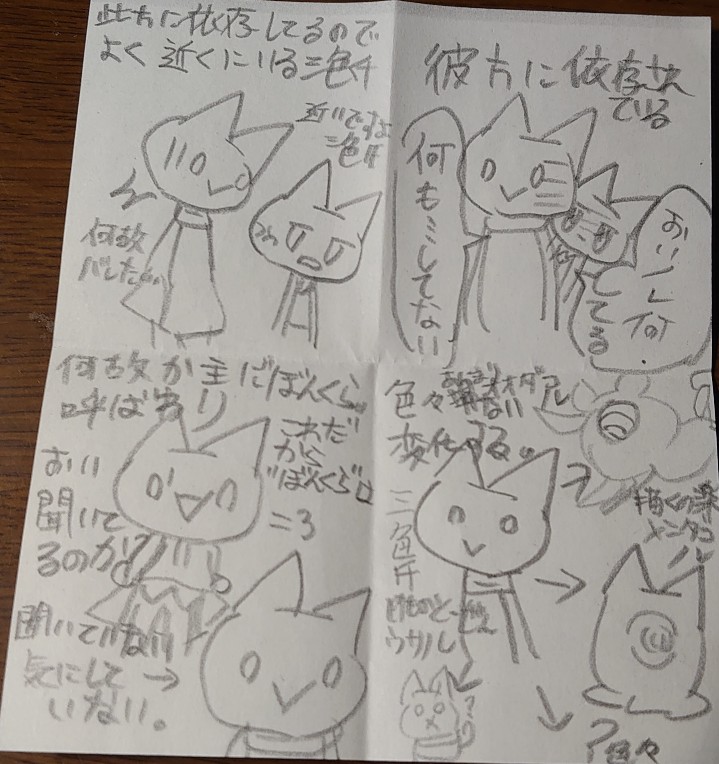 此方に依存してるので
よく近くにいる三色千
近いですよ
三色千
何故
バレた
彼方に依存
している
何も…してない
おい!何
してる
何故か主に"ぼんくら"
呼ばり
これだ
から
"ぼんくら"は
おい
聞いて
るのか
=3
聞いていない
気にして→
いない。
色々
変化する。
描くの楽
メンダコ
三色千
ウサル
?色々